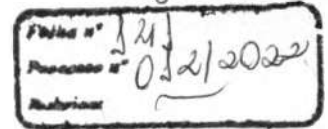 Folha nº 121
Processo nº 012/2022
Rubrica: